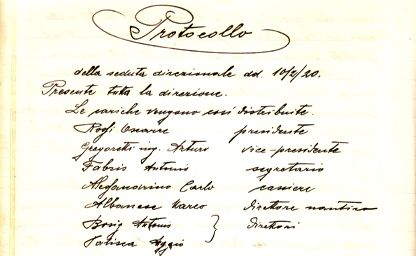 Protocollo
della seduta direzionale dd. 10/2/20.
Presente tutta la direzione.
Le cariche vengono così distribuite.
presidente
Gregoretti ing. Arturo vice-presidente
Fabris Antonio segretario
Alessandrino Carlo cassiere
Albanese Marco direttore nautico
Antonio } direttori